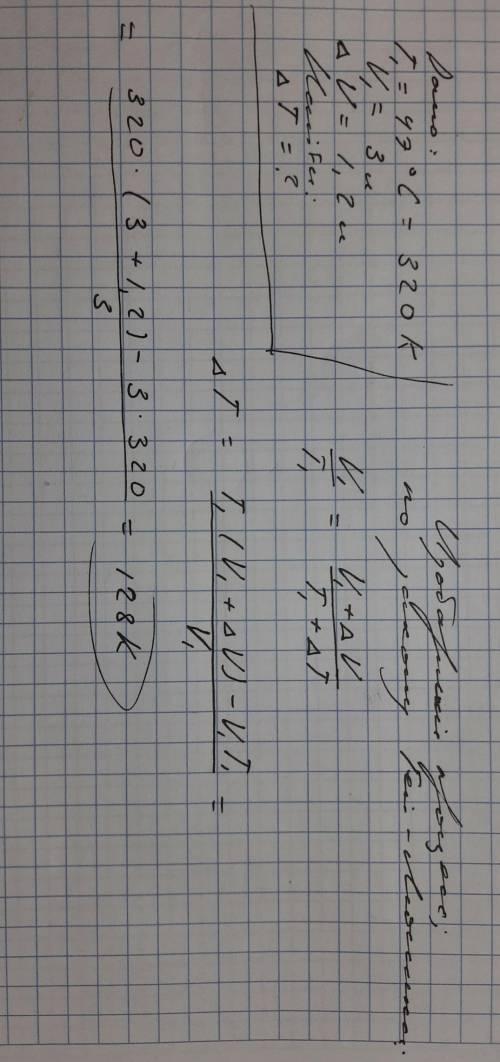 Дано:
T₁ = 47°C = 320 K
V₁ = 3 л
Δ V = 1,2 л
Найти:
Δ T = ?
Изобарный процесс;
по закону Гей-Люссака:
V₁/T₁ = (V₁ + Δ V)/(T₁ + Δ T)
Δ T = (T₁ (V₁ + Δ V) - V₁T₁)/V₁ =
= (320 · (3 + 1,2) - 3 · 320)/3 = 128 K